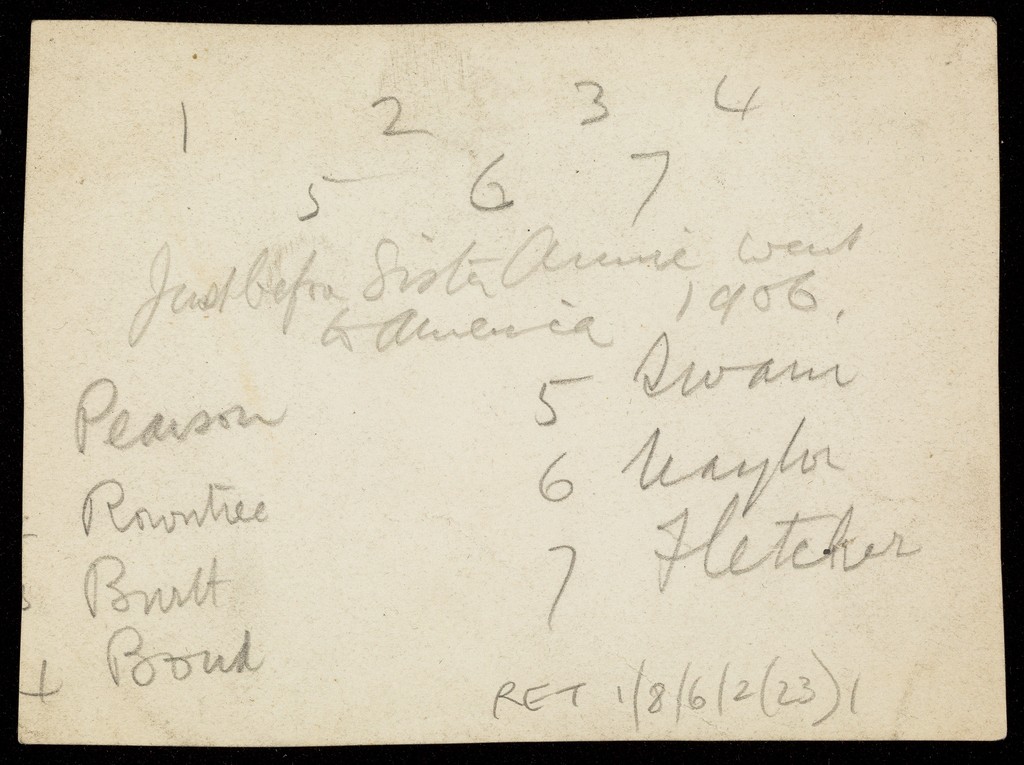 1 2 3 4
5 6 7
Just before Sister Annie went
to America 1906.
Pearson
Rowntree
Burtt
4 Bond
5 Swann
6 Naylor
7 Fletcher
RET 1/8/6/2(23)1